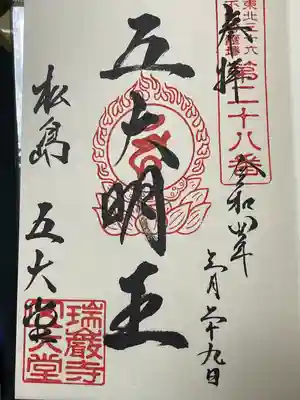 東北三十六
不動尊霊場
第二十八番
奉拝
令和四年
三月二十九日
五大明王
松島 五大堂
瑞巖寺
五大堂